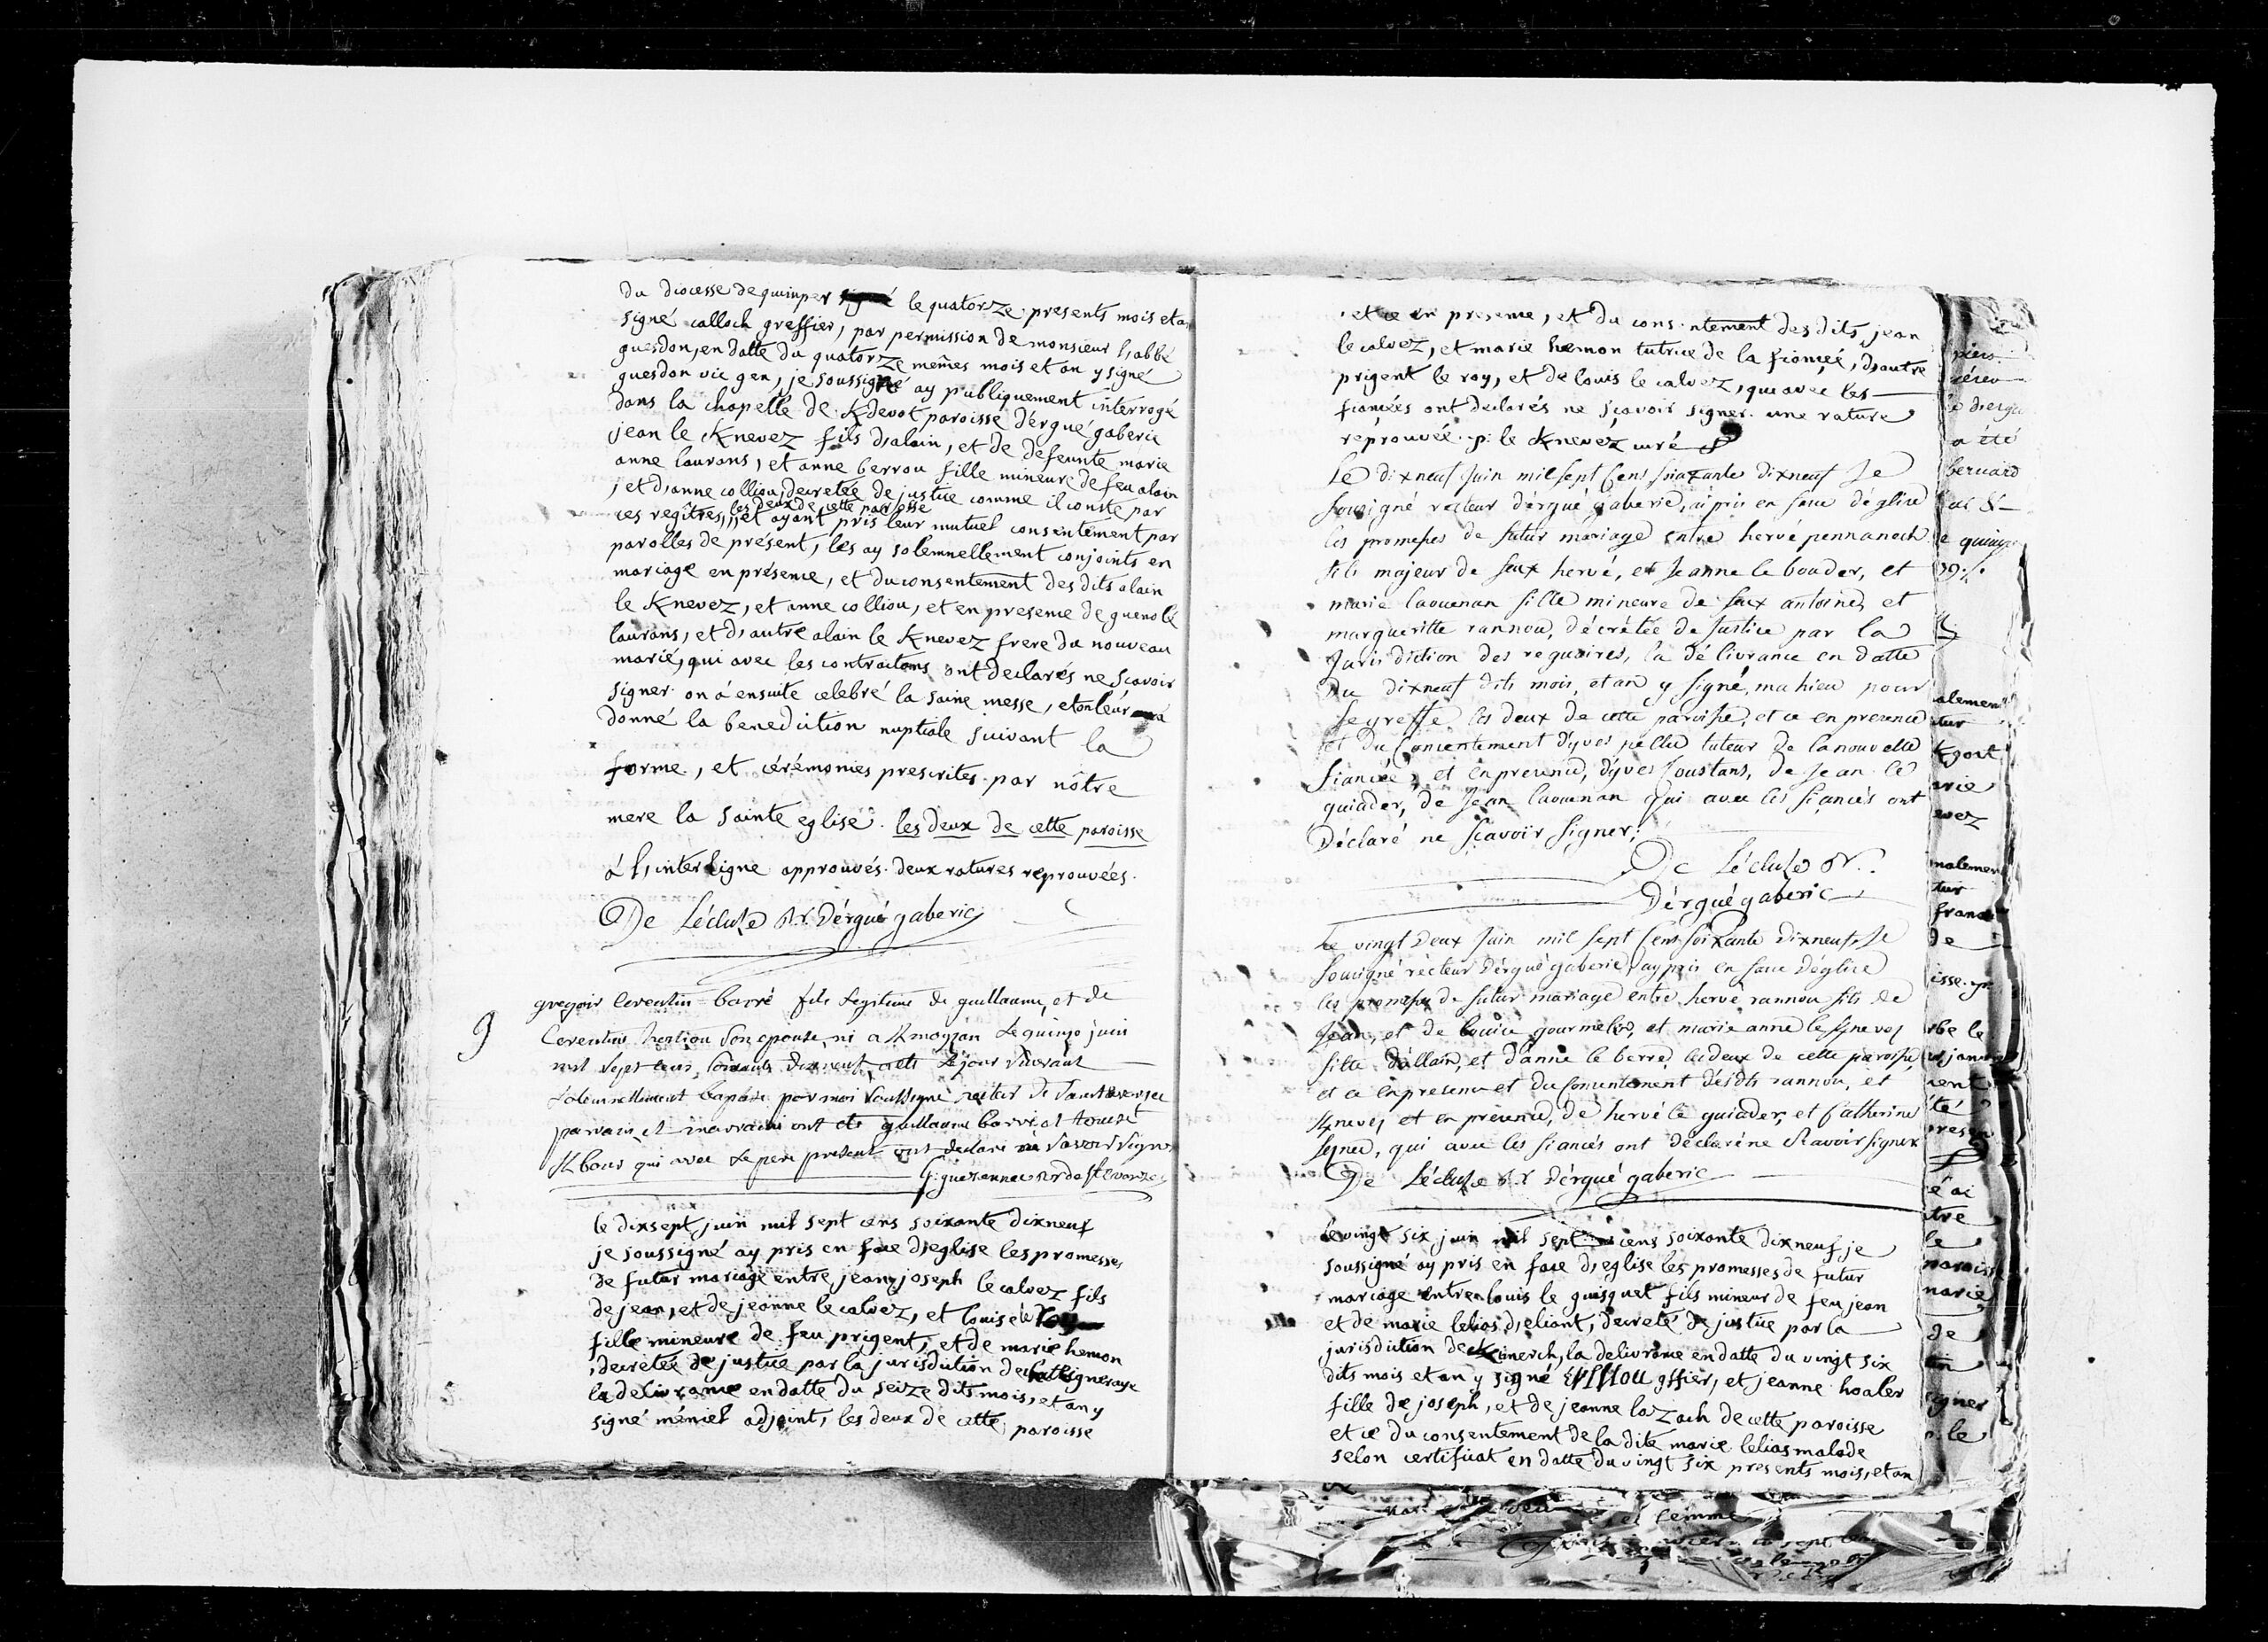 du diocesse de quimper signé le quatorze presents mois et an
signé calloch greffier, par permission de monsieur l'abbé
guesdon, en datte du quatorze mêmes mois et an y signé
guesdon vic gen, je soussigné ay publiquement interrogé
dans la chapelle de Kdevot paroisse d'ergué gaberic
jean le Knevez fils d'alain, et de defeunte marie
anne laurans, et anne berrou fille mineure de feu alain
, et d'anne colliou, decretée de justice comme il conste par
les deux de cette paroisse
ces regîtres, et ayant pris leur mutuel consentement par
parolles de présent, les ay solemnellement conjoints en
mariage en présence, et du consentement des dits alain
le Knevez, et anne colliou, et en presence de guenolé
laurans, et d'autre alain le Knevez frere du nouveau
marié, qui avec les contractans ont declarés ne scavoir
signer on á ensuite celebré la saine messe, et on leur a
donné la benediction nuptiale suivant la
forme, et cérémonies prescrites par nôtre
mere la sainte eglise. les deux de cette paroisse
á l'interligne approuvés. deux ratures reprouvées.
De Lécluse Rr. d'ergué gaberic
9
gregoir Corentin barré fils legitime de guillaume, et de
Corentine son epouse, né a Kmoyzan le quinze juin
mil sept cens soixante dixneuf, a été le jour suivant
solemnellement baptisé par moi soussigné recteur de
parrain, et marraine ont été guillaume barré et
Kbour qui avec le pere present ont declaré ne savoir signer
le dixsept juin mil sept cens soixante dixneuf
je soussigné ay pris en face d'eglise les promesses
de futur mariage entre jean joseph le calvez fils
de jean, et de jeanne le calvez, et louise le roy
fille mineure de feu prigent, et de marie hemon
, decretée de justice par la jurisdiction de
la delivrance en datte du seize dits mois, et an y
signé méniel adjoint, les deux de cette paroisse
et ce en presence, et du consentement des dits jean
le calvez, et marie hemon tutrice de la fiancée, d'autre
prigent le roy, et de louis le calvez, qui avec les
fiancées ont declarés ne scavoir signer. une rature
réprouvée. p: le Knevez curé
Le dixneuf juin mil sept cens soixante dixneuf Je
soussigné recteur d'ergué gaberic, ai pris en face d'église
les promesses de futur mariage entre hervé pennanech
fils majeur de feux hervé, et Jeanne le bouder, et
marie laouenan fille mineure de feux antoine, et
margueritte rannou, décrétée de Justice par la
Jurisdiction des reguaires, la délivrance en datte
du dixneuf dits mois, et an y signé, mahieu pour
le greffe, les deux de cette paroisse, et ce en presence
et du consentement d'yves tuteur de la nouvelle
fiancée, et en presence, d'yves Coustans, de Jean le
guiader, de Jean laouenan qui avec les fiancés ont
Déclaré ne scavoir signer;
De Lécluse Rr.
D'ergué gaberic
Le vingt deux Juin mil sept cens soixante dixneuf Je
soussigné recteur d'ergué gaberic, ay pris en face d'église
les promesses de futur mariage entre hervé rannou fils de
Jean, et de louise gourmelen, et marie anne le Knevez
fille d'allain, et d'anne le berre, les deux de cette paroisse,
et ce en presence et du consentement desdts rannou, et
Knevez et en presence, de hervé le guiader, et Catherine
, qui avec les fiancés ont déclaré ne scavoir signer
De Lécluse Rr D'ergué gaberic
le vingt six juin mil sept cens soixante dixneuf je
soussigné ay pris en face d'eglise les promesses de futur
mariage entre louis le guisquet fils mineur de feu jean
et de marie lelias d'eliant, decreté de justice par la
jurisdiction de la delivrance en datte du vingt six
dits mois et an y signé gffier, et jeanne hoaler
fille de joseph, et de jeanne lozach de cette paroisse
et ce du consentement de la dite marie lelias malade
selon certificat en datte du vingt six presents mois, et an